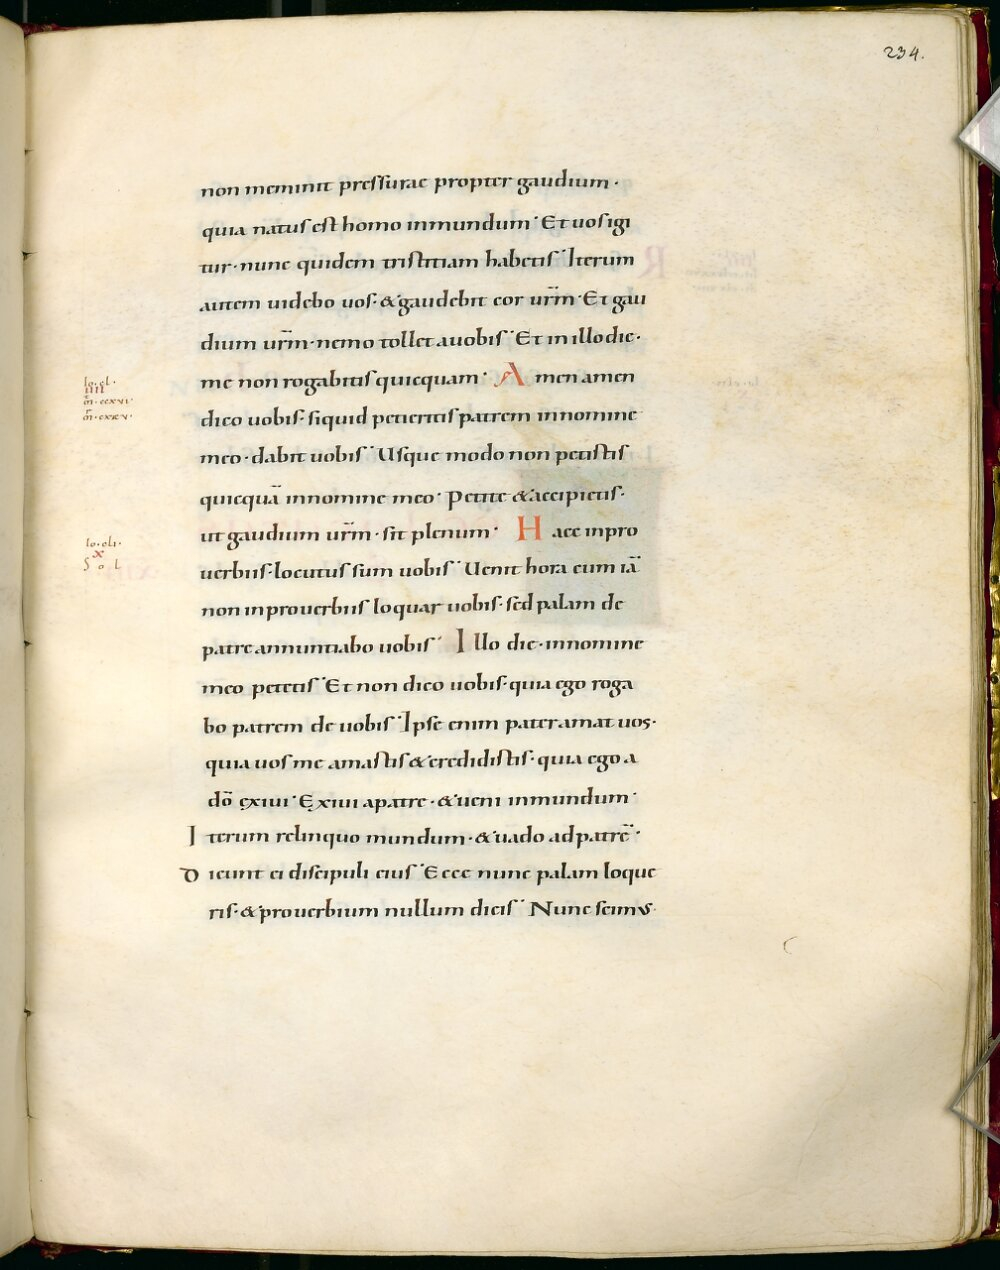 234.
non meminit pressurae propter gaudium·
quia natus est homo inmundum· Et uos igi
tur· nunc quidem tristitiam habetis· Iterum
autem uidebo uos· & gaudebit cor ur̄m· Et gau
dium ur̄m· nemo tollet auobis· Et in illo die·
me non rogabitis quicquam· Amen amen
dico uobis· siquid petieritis patrem innomine
meo· dabit uobis· Usque modo non petistis
quicquā innomine meo· Petite & accipietis·
ut gaudium ur̄m· sit plenum· Haec inpro
uerbiis· locutus sum uobis· Uenit hora cum iā
non in prouerbiis loquar uobis· sed palam de
patre annuntiabo uobis· Illo die· innomine
meo petetis· Et non dico uobis· quia ego roga
bo patrem de uobis· Ipse enim pater amat uos·
quia uos me amastis & credidistis· quia ego a
dō exiui· Exiui apatre· & ueni inmundum·
Iterum relinquo mundum· & uado ad patrē·
Dicunt ei discipuli eius· Ecce nunc palam loque
ris· & prouerbium nullum dicis· Nunc scimus
Io·cl·
IIII
m̄·ccxvi·
Io·cli·
x
Sol